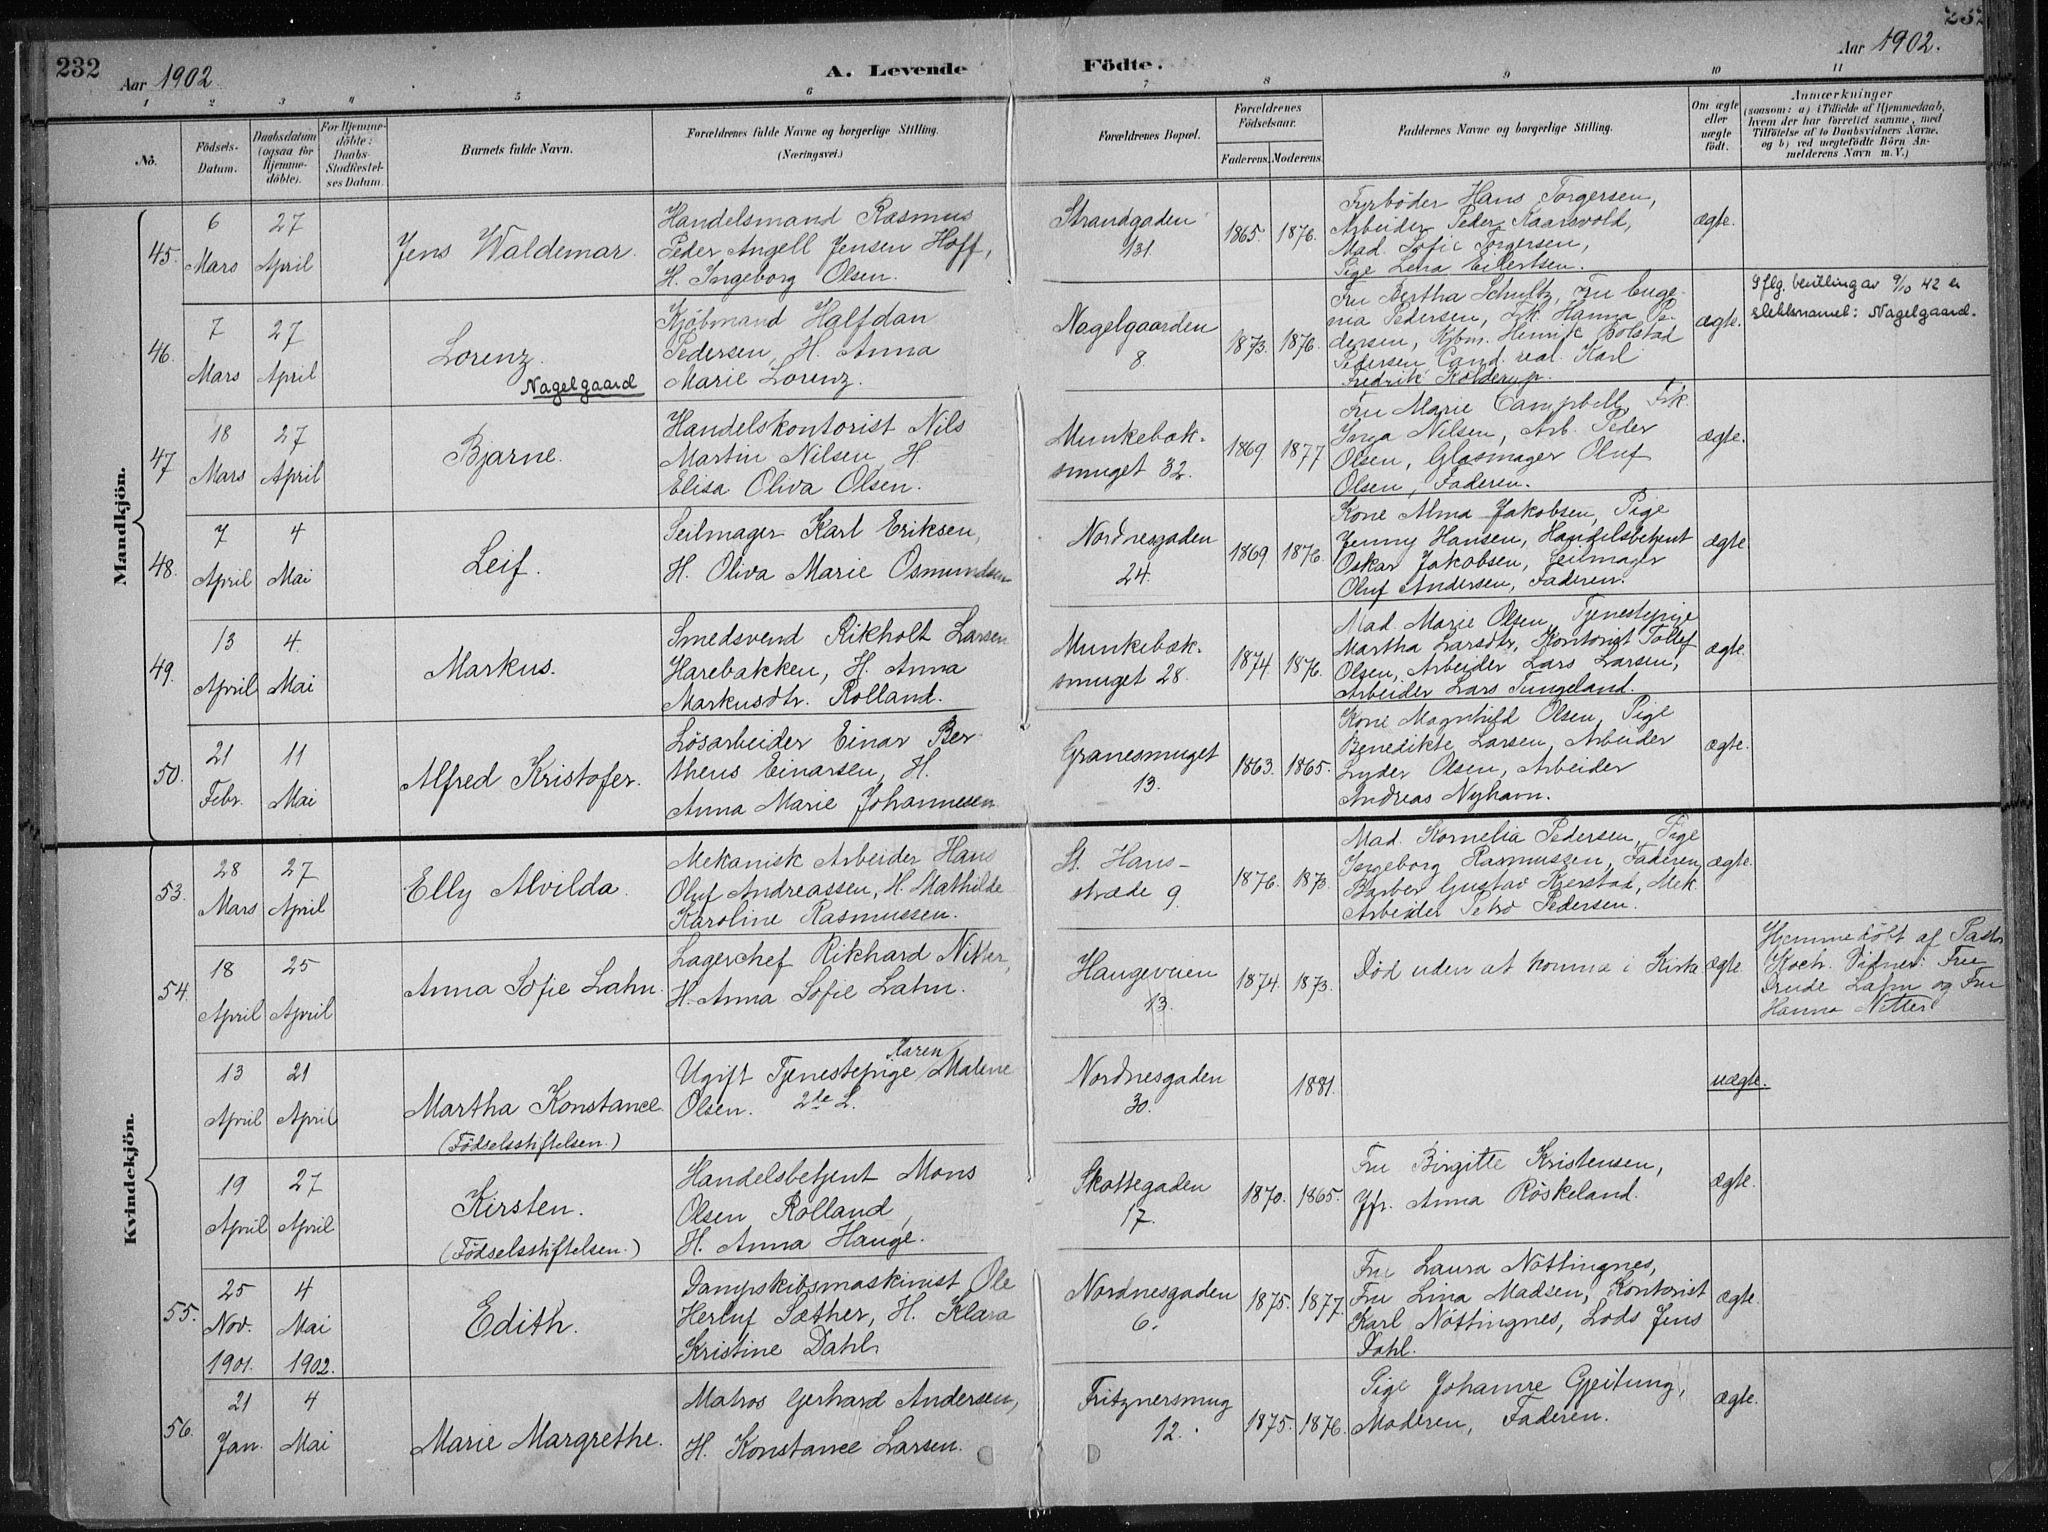 232
Aar 1902.
A. Levende Födte.
Aar 1902.
232
1 2 3 4 5 6 7 8 9 10 11
No.
Födsels-Datum.
Daabsdatum (ogsaa for Hjemme-döbte).
For Hjemme-döbte: Daabs-Stadfæstel-ses Datum.
Barnets fulde Navn.
Forældrenes fulde Navne og borgerlige Stilling.
(Næringsvei.)
Forældrenes Bopæl.
Forældrenes Födselsaar.
Faderens. Moderens.
Faddernes Navne og borgerlige Stilling.
Om ægte eller uægte födt.
Anmærkninger
(saasom: a) i Tilfælde af Hjemmedaab, hvem der har forrettet samme, med Tilföielse af to Daabsvidners Navne. og b) ved uægtefödte Börn An-melderens Navn m. V.)
Mandkjön.
45.
6 Mars
27 April
Jens Waldemar.
Handelsmand Rasmus
Peder Angell Jensen Hoff,
H. Ingeborg Olsen.
Strandgaden
131.
1865. 1876.
Fyrbøder Hans Torgersen,
Arbeider Peder Kaarsvold,
Mad. Sofie Torgersen,
Pige Lena Eilertsen.
ægte.
46.
7 Mars
27 April
Lorenz.
Nagelgaard
Kjøbmand Halfdan
Pedersen, H. Anna
Marie Lorenz.
Nagelgaarden
8.
1873. 1876.
Fru Bertha Schultz, Fru Euge-
nia Pedersen, Frk. Hanna Pe-
dersen, Kjbm. Henrik Bolstad
Pedersen Cand. real. Karl
Fredrik Kolderup.
ægte.
Iflg. bevilling av 9/10 42 er
slektsnavnet: Nagelgaard.
47
18 Mars
27 April
Bjarne.
Handelskontorist Nils
Martin Nilsen, H.
Elisa Oliva Olsen.
Munkebæk-
smuget 32.
1869. 1877
Fru Marie Campbell, Frk.
Inga Nilsen, Arb. Peder
Olsen, Glasmager Oluf
Olsen, Faderen.
ægte.
48.
7 April
4 Mai
Leif.
Seilmager Karl Eriksen,
H. Oliva Marie Osmundsen
Nordnesgaden
24.
1869 1876.
Kone Alma Jakobsen, Pige
Jenny Hansen, Handelsbetjent
Oskar Jakobsen, Seilmager
Oluf Andersen, Faderen.
ægte
49.
13 April
4 Mai
Markus.
Smedsvend Rikholt Larsen
Harebakken, H. Anna
Markusdtr. Rolland.
Munkebæk-
smuget 28.
1874 1876.
Mad. Marie Olsen, Tjenestepige
Martha Larsdtr, Kontorist Tollef
Olsen, Arbeider Lars Larsen,
Arbeider Lars Tungeland.
ægte.
50.
21 Febr.
11 Mai
Alfred Kristofer.
Løsarbeider Einar Ber-
theus Einarsen, H.
Anna Marie Johannesen
Granesmuget
13.
1863. 1865.
Kone Magnhild Olsen, Pige
Benedikte Larsen, Arbeider
Lyder Olsen, Arbeider
Andreas Nyhavn.
ægte.
Kvindekjön.
53.
28 Mars
27 April
Elly Alvilda.
Mekanisk Arbeider Hans
Oluf Andreassen, H. Mathilde
Karoline Rasmussen.
St. Hans-
stræde 9.
1876.
Mad. Kornelia Pedersen, Pige
Ingeborg Rasmussen, Faderen,
Barber Gustav Kjerstad, Mek.
Arbeider Petro Pedersen.
ægte.
54.
18 April
25 April
Anna Sofie Lahn.
Lagerchef Rikhard Nitter,
H. Anna Sofie Lahn.
Haugeveien
13.
1874. 1873.
Død uden at komma i Kirka
ægte.
Hjemmedøbt af Pastor
Koch. Vidner: Fru
Trude Lahn og Fru
Hanna Nitter.
13 April
21 April
Martha Konstance.
(Fødselsstiftelsen.)
Karen
Ugift Tjenestepige Malene
Olsen. 2de L.
Nordnesgaden
30.
1881.
uægte.
19 April
27 April
Kirsten.
(Fødselsstiftelsen.)
Handelsbetjent Mons
Olsen Rolland,
H. Anna Hauge.
Skottegaden
17.
1870. 1865.
Fru Birgitte Kristensen,
Jfr. Anna Røskeland.
ægte.
55.
25 Nov. 1901.
4 Mai 1902.
Edith.
Dampskibsmaskinist Ole
Herluf Sæther, H. Klara
Kristine Dahl.
Nordnesgaden
6.
1875. 1877.
Fru Laura Nöttingnes,
Fru Lina Madsen, Kontorist
Karl Nöttingnes, Lods Jens
Dahl.
ægte.
56.
21 Jan.
4 Mai
Marie Margrethe.
Matros Gerhard Andersen,
H. Konstance Larsen.
Fritznersmug
12.
1875. 1876.
Pige Johanne Gjeitung,
Moderen, Faderen.
ægte.